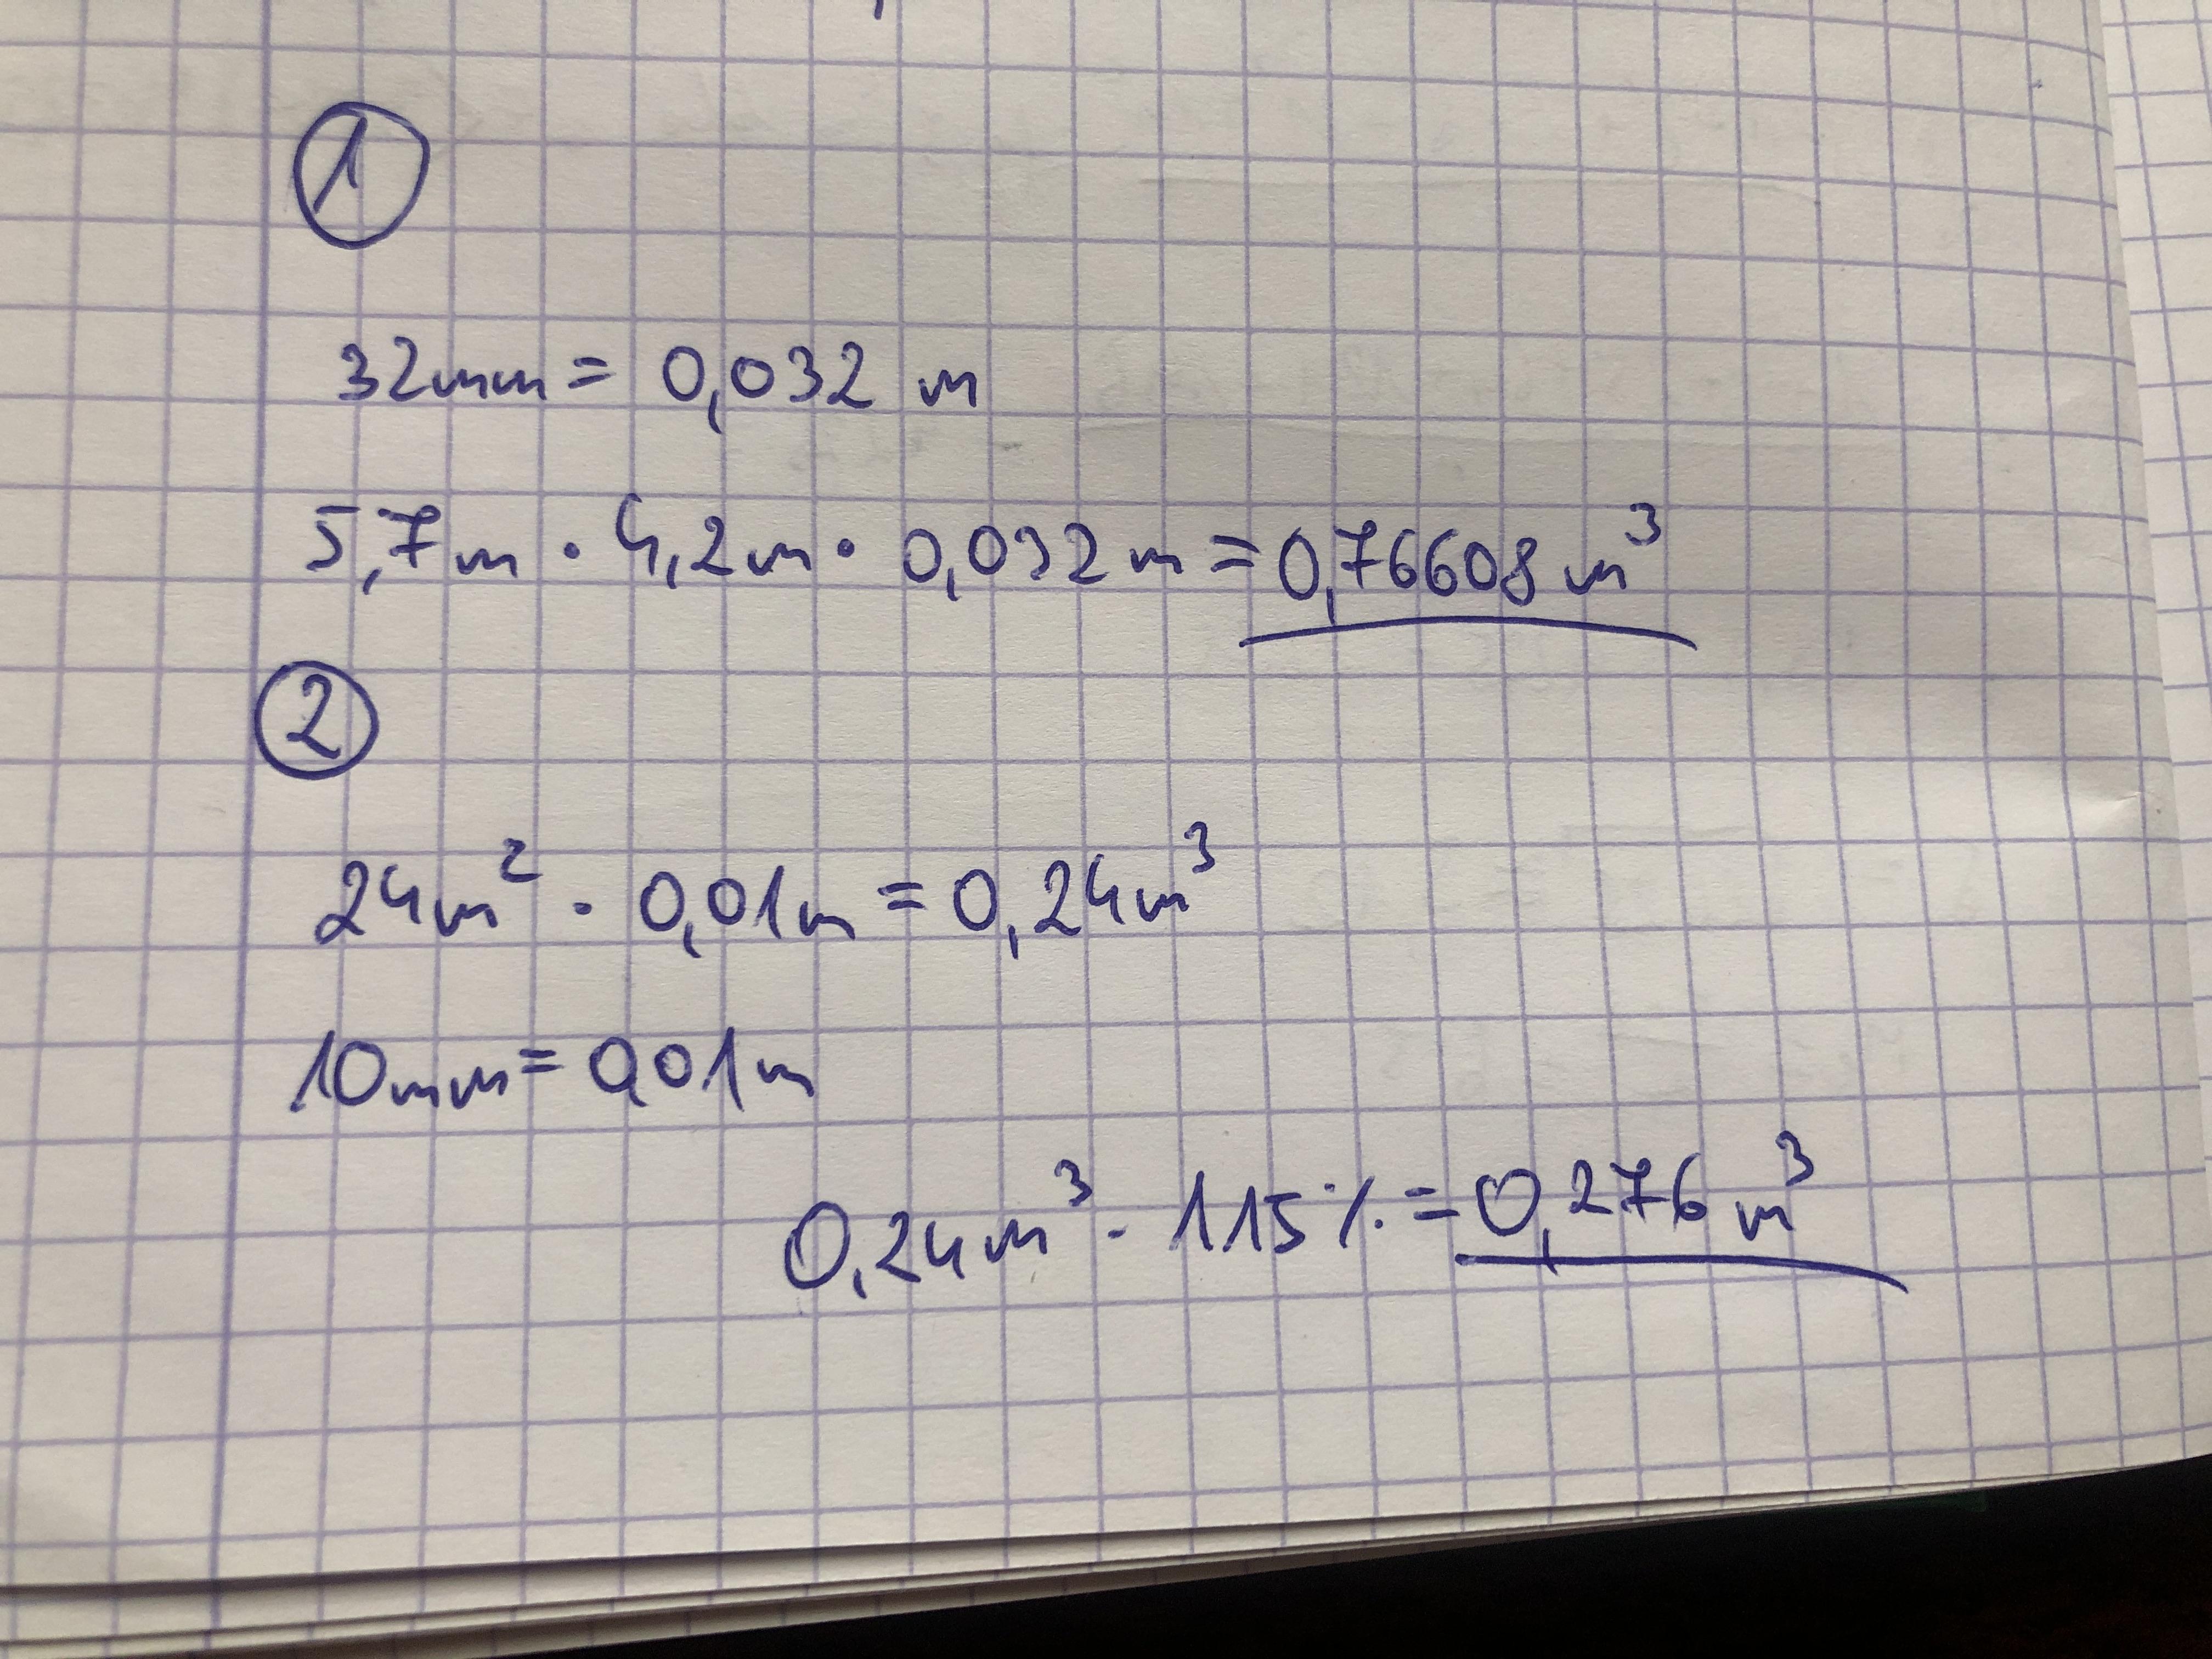 1
32mm = 0,032 m
5,7m · 4,2m · 0,032m = 0,76608 m³
2
24m² · 0,01m = 0,24m³
10mm = 0,01m
0,24m³ · 115% = 0,276 m³